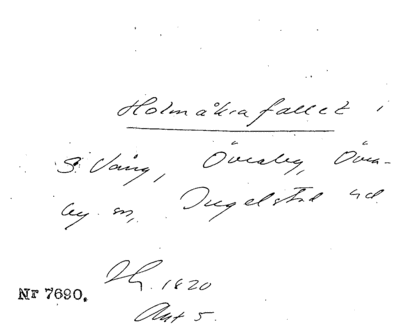 Holmåkrafallet i
S. Vång, Övraby, Övra-
by sn, Ingelstad hd.
Nr 7690.
1820
Akt 5.